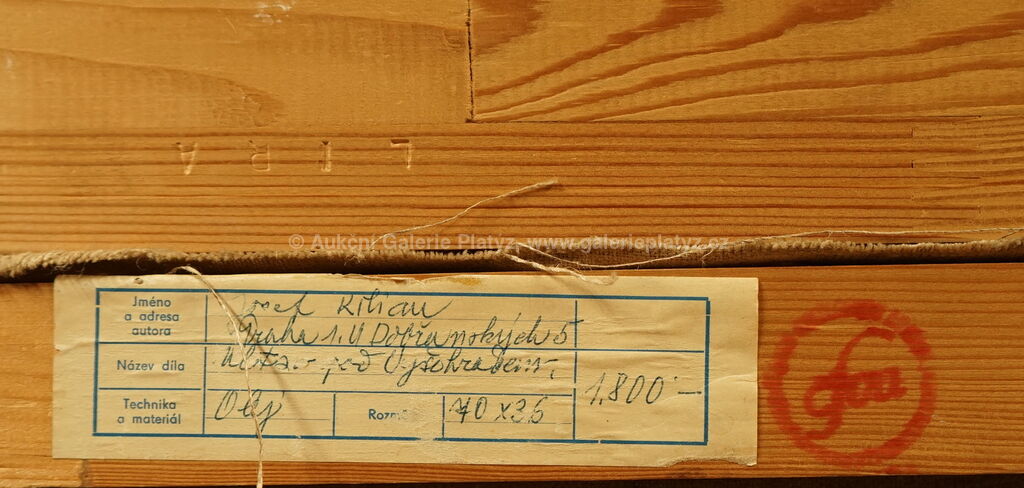 LIRA
© Aukční Galerie Platýz, www.galerieplatyz.cz
Jméno a adresa autora
Josef Kilian
Praha 1. U Dobřenských 5
Název díla
pod Vyšehradem,
Technika a materiál
Olej
Rozm
70 x 36
1.800.-